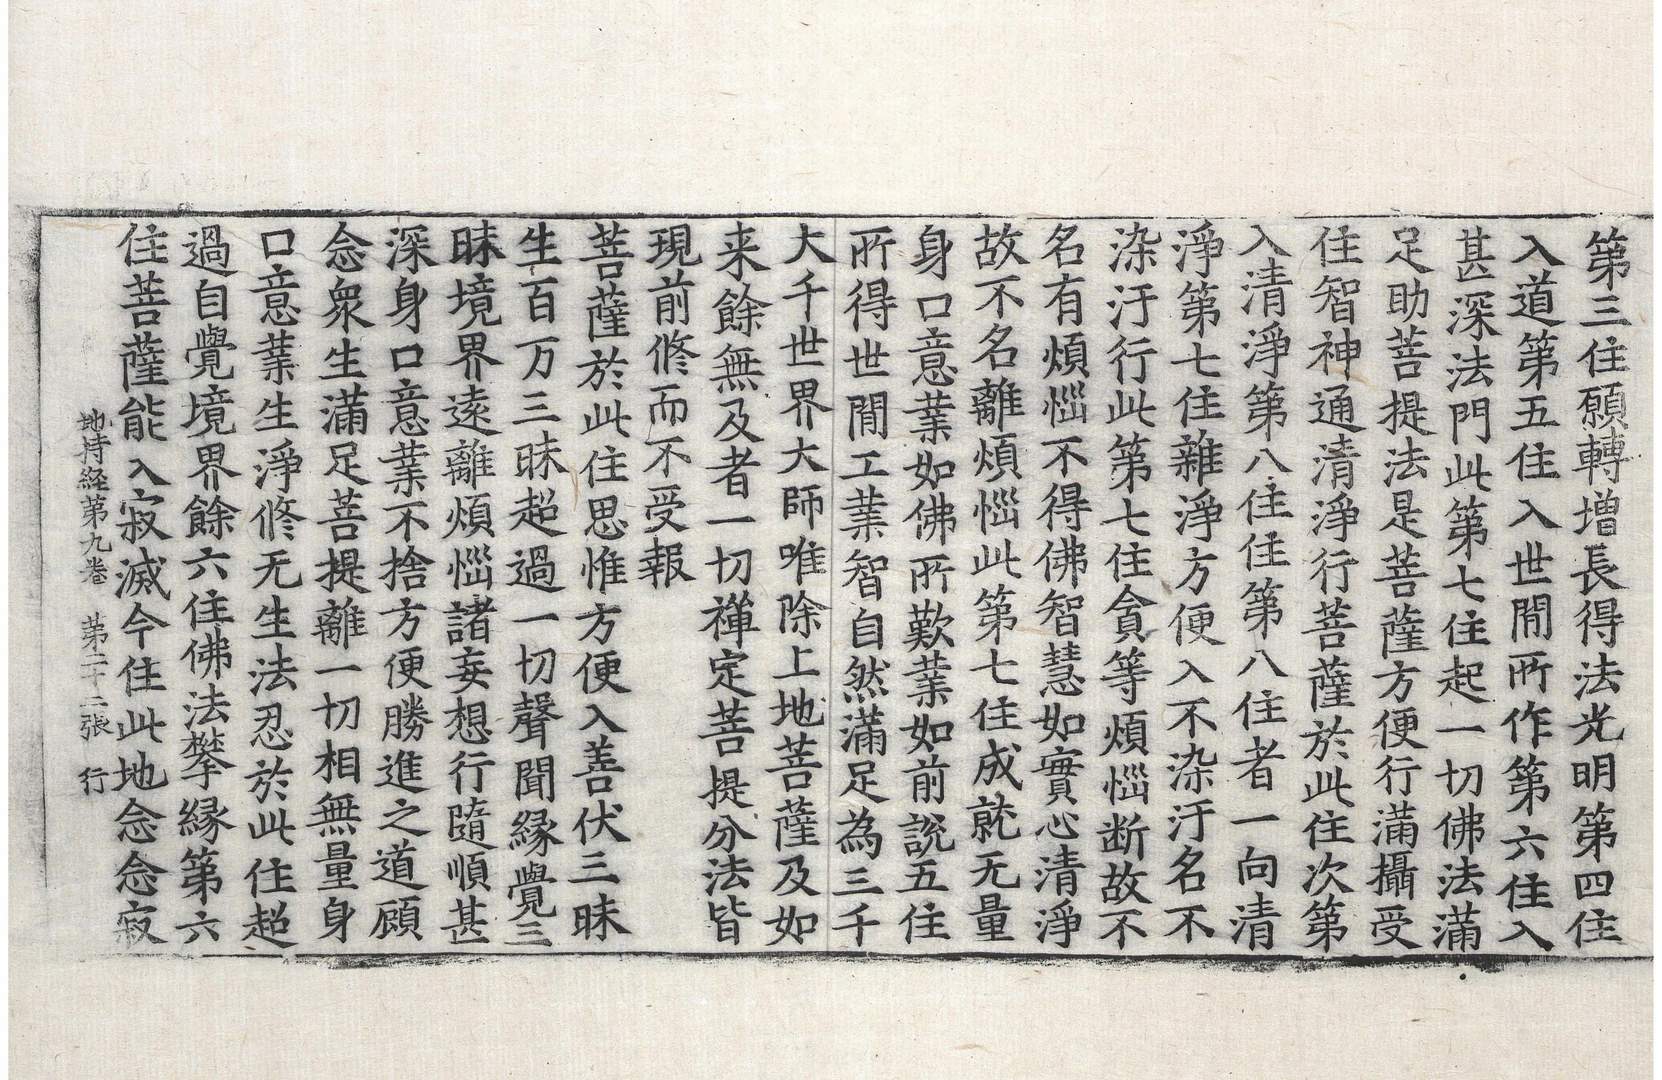 第三住願轉增長得法光明第四住
入道第五住入世閒所作第六住入
甚深法門此第七住起一切佛法滿
足助菩提法是菩薩方便行滿攝受
住智神通清淨行菩薩於此住次第
入清淨第八住住第八住者一向清
淨第七住雜淨方便入不染汙名不
染汙行此第七住貪等煩惱断故不
名有煩惱不得佛智慧如實心清淨
故不名離煩惱此第七住成就无量
身口意業如佛所歎業如前說五住
所得世閒工業智自然滿足為三千
大千世界大師唯除上地菩薩及如
来餘無及者一切禪定菩提分法皆
現前修而不受報
菩薩於此住思惟方便入善伏三昧
生百万三昧超過一切聲聞緣覺三
昧境界遠離煩惱諸妄想行隨順甚
深身口意業不捨方便勝進之道顧
念衆生滿足菩提離一切相無量身
口意業生淨修无生法忍於此住超
過自覺境界餘六住佛法攀緣第六
住菩薩能入寂滅今住此地念念寂
地持経第九卷　第二十二張　行